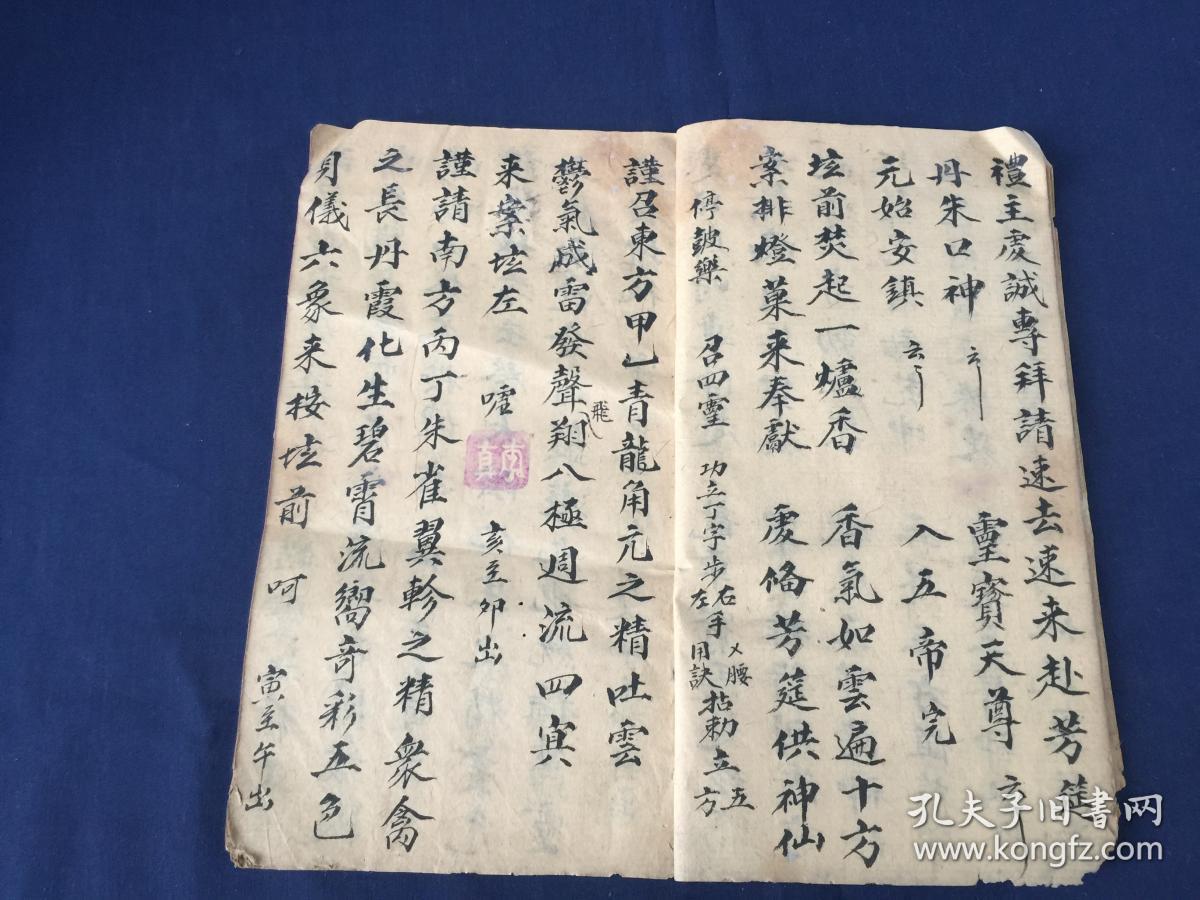 禮主虔誠專拜請速去速来赴芳筵
丹朱口神 云 靈寳天尊 云
元始安鎮 云 入五帝完
坛前焚起一爐香 香氣如雲遍十方
案排燈菓来奉獻 虔俻芳筵供神仙
停皷樂 召四靈 功立丁字步右手乂腰左用訣拈勅立五方
謹召東方甲乙青龍角亢之精吐雲
鬱氣威雷發聲飛翔八極週流四寘
来案坛左 嘘 亥至卯出
謹請南方丙丁朱雀翼軫之精衆禽
之長丹霞化生碧霄流嚮奇彩五色
身儀六象来按坛前 呵 寅至午出
孔夫子旧書网
www.kongfz.com